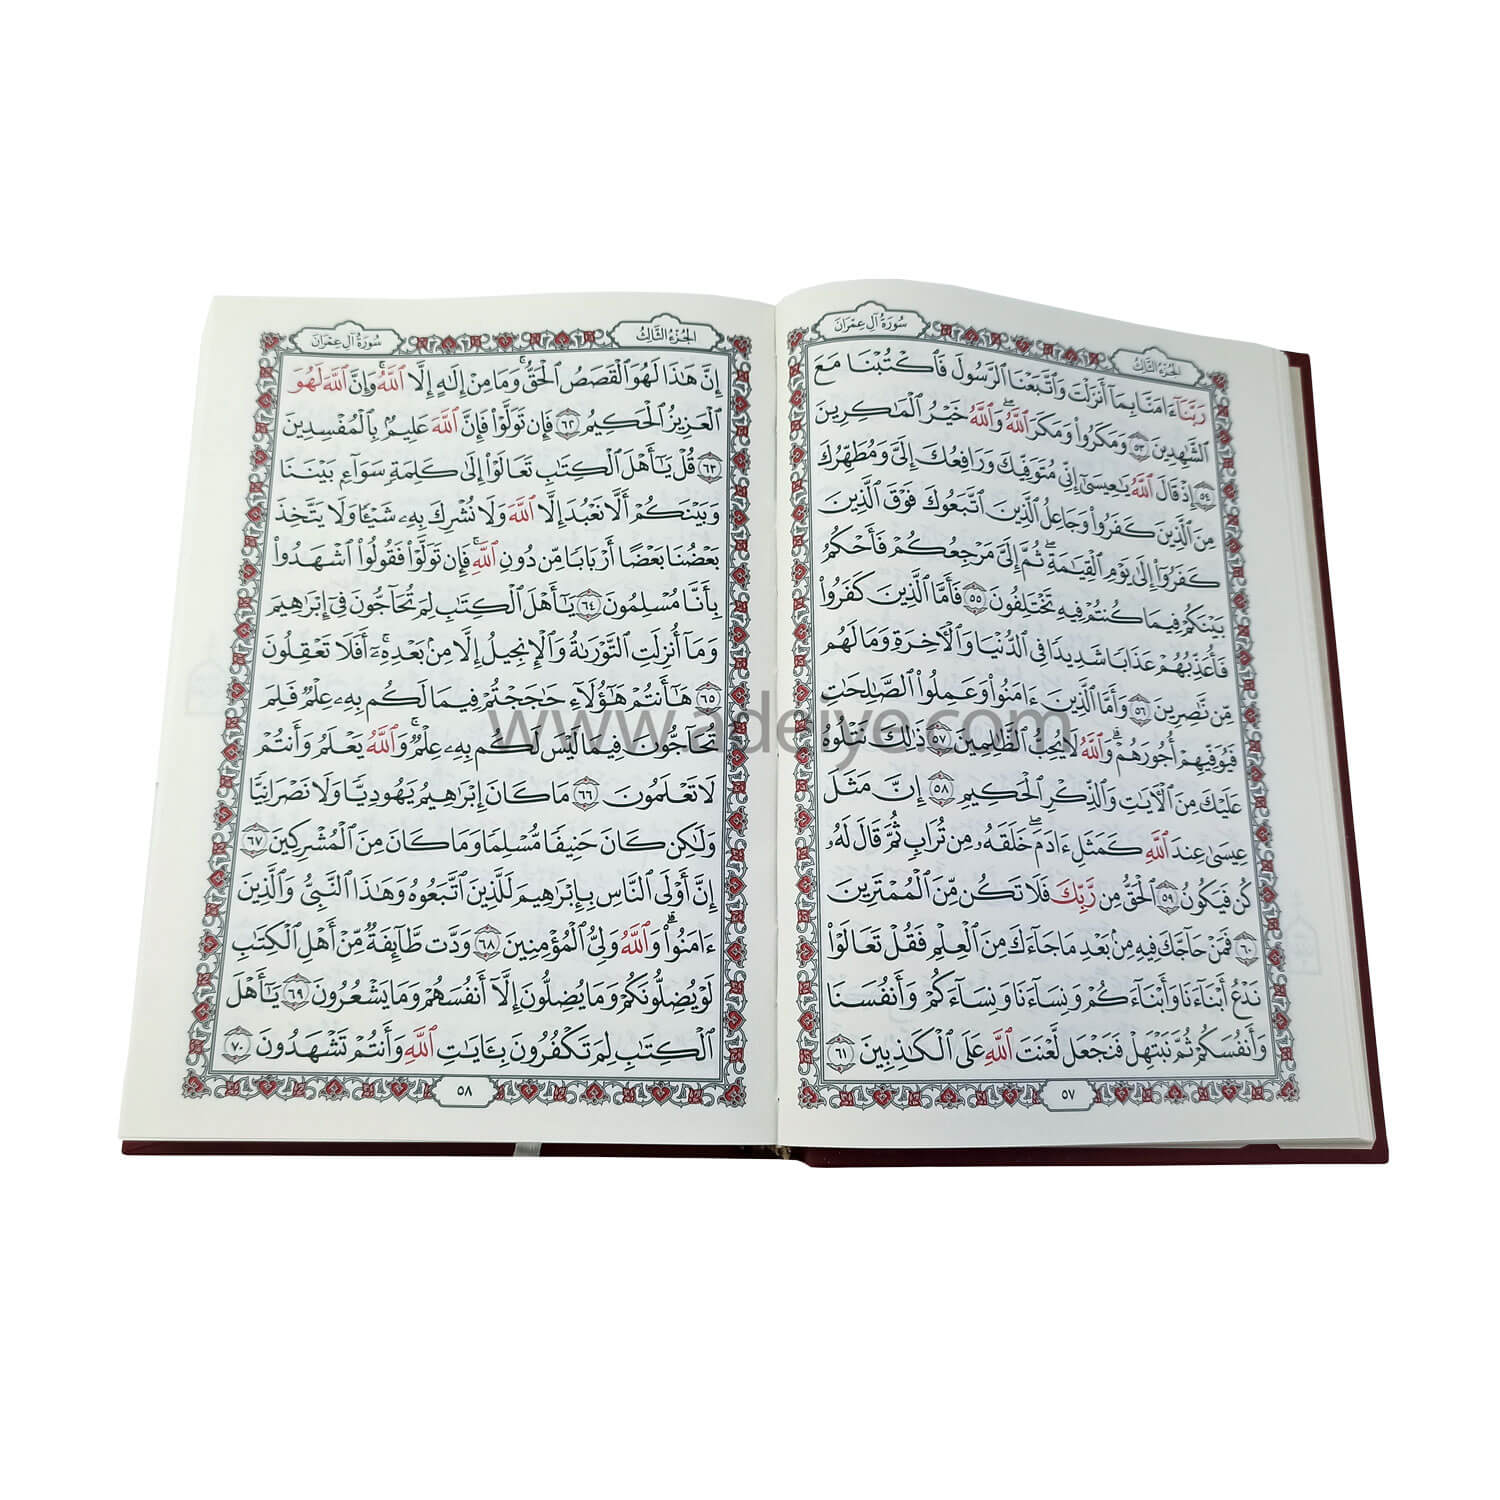 سُورَةُ آلِ عِمْرَانَ
الجُزْءُ الثَّالِثُ
رَبَّنَآ ءَامَنَّا بِمَآ أَنزَلْتَ وَٱتَّبَعْنَا ٱلرَّسُولَ فَٱكْتُبْنَا مَعَ
ٱلشَّٰهِدِينَ ٥٣ وَمَكَرُوا۟ وَمَكَرَ ٱللَّهُ ۖ وَٱللَّهُ خَيْرُ ٱلْمَٰكِرِينَ
٥٤ إِذْ قَالَ ٱللَّهُ يَٰعِيسَىٰٓ إِنِّى مُتَوَفِّيكَ وَرَافِعُكَ إِلَىَّ وَمُطَهِّرُكَ
مِنَ ٱلَّذِينَ كَفَرُوا۟ وَجَاعِلُ ٱلَّذِينَ ٱتَّبَعُوكَ فَوْقَ ٱلَّذِينَ
كَفَرُوٓا۟ إِلَىٰ يَوْمِ ٱلْقِيَٰمَةِ ۖ ثُمَّ إِلَىَّ مَرْجِعُكُمْ فَأَحْكُمُ
بَيْنَكُمْ فِيمَا كُنتُمْ فِيهِ تَخْتَلِفُونَ ٥٥ فَأَمَّا ٱلَّذِينَ كَفَرُوا۟
فَأُعَذِّبُهُمْ عَذَابًا شَدِيدًا فِى ٱلدُّنْيَا وَٱلْءَاخِرَةِ وَمَا لَهُم
مِّن نَّٰصِرِينَ ٥٦ وَأَمَّا ٱلَّذِينَ ءَامَنُوا۟ وَعَمِلُوا۟ ٱلصَّٰلِحَٰتِ
فَيُوَفِّيهِمْ أُجُورَهُمْ ۗ وَٱللَّهُ لَا يُحِبُّ ٱلظَّٰلِمِينَ ٥٧ ذَٰلِكَ نَتْلُوهُ
عَلَيْكَ مِنَ ٱلْءَايَٰتِ وَٱلذِّكْرِ ٱلْحَكِيمِ ٥٨ إِنَّ مَثَلَ
عِيسَىٰ عِندَ ٱللَّهِ كَمَثَلِ ءَادَمَ ۖ خَلَقَهُۥ مِن تُرَابٍ ثُمَّ قَالَ لَهُۥ
كُن فَيَكُونُ ٥٩ ٱلْحَقُّ مِن رَّبِّكَ فَلَا تَكُن مِّنَ ٱلْمُمْتَرِينَ
٦٠ فَمَنْ حَآجَّكَ فِيهِ مِنۢ بَعْدِ مَا جَآءَكَ مِنَ ٱلْعِلْمِ فَقُلْ تَعَالَوْا۟
نَدْعُ أَبْنَآءَنَا وَأَبْنَآءَكُمْ وَنِسَآءَنَا وَنِسَآءَكُمْ وَأَنفُسَنَا
وَأَنفُسَكُمْ ثُمَّ نَبْتَهِلْ فَنَجْعَل لَّعْنَتَ ٱللَّهِ عَلَى ٱلْكَٰذِبِينَ ٦١
٥٧
الجُزْءُ الثَّالِثُ
سُورَةُ آلِ عِمْرَانَ
إِنَّ هَٰذَا لَهُوَ ٱلْقَصَصُ ٱلْحَقُّ ۚ وَمَا مِنْ إِلَٰهٍ إِلَّا ٱللَّهُ ۚ وَإِنَّ ٱللَّهَ لَهُوَ
ٱلْعَزِيزُ ٱلْحَكِيمُ ٦٢ فَإِن تَوَلَّوْا۟ فَإِنَّ ٱللَّهَ عَلِيمٌۢ بِٱلْمُفْسِدِينَ
٦٣ قُلْ يَٰٓأَهْلَ ٱلْكِتَٰبِ تَعَالَوْا۟ إِلَىٰ كَلِمَةٍ سَوَآءٍۭ بَيْنَنَا
وَبَيْنَكُمْ أَلَّا نَعْبُدَ إِلَّا ٱللَّهَ وَلَا نُشْرِكَ بِهِۦ شَيْـًٔا وَلَا يَتَّخِذَ
بَعْضُنَا بَعْضًا أَرْبَابًا مِّن دُونِ ٱللَّهِ ۚ فَإِن تَوَلَّوْا۟ فَقُولُوا۟ ٱشْهَدُوا۟
بِأَنَّا مُسْلِمُونَ ٦٤ يَٰٓأَهْلَ ٱلْكِتَٰبِ لِمَ تُحَآجُّونَ فِىٓ إِبْرَٰهِيمَ
وَمَآ أُنزِلَتِ ٱلتَّوْرَىٰةُ وَٱلْإِنجِيلُ إِلَّا مِنۢ بَعْدِهِۦٓ ۚ أَفَلَا تَعْقِلُونَ
٦٥ هَٰٓأَنتُمْ هَٰٓؤُلَآءِ حَٰجَجْتُمْ فِيمَا لَكُم بِهِۦ عِلْمٌ فَلِمَ
تُحَآجُّونَ فِيمَا لَيْسَ لَكُم بِهِۦ عِلْمٌ ۚ وَٱللَّهُ يَعْلَمُ وَأَنتُمْ
لَا تَعْلَمُونَ ٦٦ مَا كَانَ إِبْرَٰهِيمُ يَهُودِيًّا وَلَا نَصْرَانِيًّا
وَلَٰكِن كَانَ حَنِيفًا مُّسْلِمًا وَمَا كَانَ مِنَ ٱلْمُشْرِكِينَ ٦٧
إِنَّ أَوْلَى ٱلنَّاسِ بِإِبْرَٰهِيمَ لَلَّذِينَ ٱتَّبَعُوهُ وَهَٰذَا ٱلنَّبِىُّ وَٱلَّذِينَ
ءَامَنُوا۟ ۗ وَٱللَّهُ وَلِىُّ ٱلْمُؤْمِنِينَ ٦٨ وَدَّت طَّآئِفَةٌ مِّنْ أَهْلِ ٱلْكِتَٰبِ
لَوْ يُضِلُّونَكُمْ وَمَا يُضِلُّونَ إِلَّآ أَنفُسَهُمْ وَمَا يَشْعُرُونَ ٦٩ يَٰٓأَهْلَ
ٱلْكِتَٰبِ لِمَ تَكْفُرُونَ بِـَٔايَٰتِ ٱللَّهِ وَأَنتُمْ تَشْهَدُونَ ٧٠
٥٨
www.adejye.com